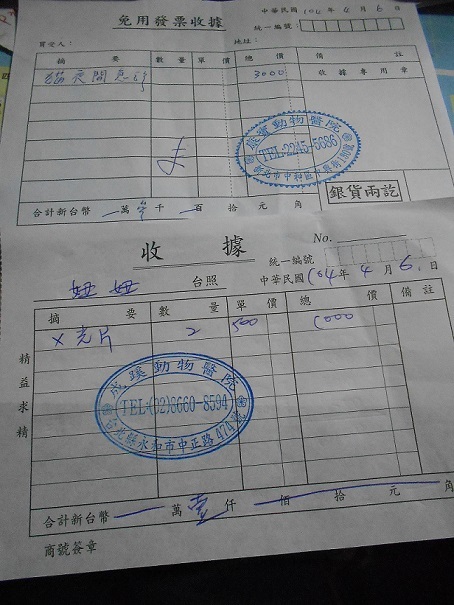 免用發票收據
中華民國 104 年 4 月 6 日
統一編號:
買受人:
地址:
摘 要 數 量 單 價 總 價 備 註
貓夜間急診 3000 收據專用章
康寶動物醫院
TEL:2245-5686
銀貨兩訖
合計新台幣 萬 仟 百 拾 元 角
收 據
No.
統一編號
妞妞 台照
中華民國 104 年 4 月 6 日
摘 要 數 量 單 價 總 價 備 註
X光片 2 500 1000
精益求精
成蹊動物醫院
TEL:(02)8660-8594
台北縣永和市中正路474號
合計新台幣 萬 壹 仟 佰 拾 元 角
商號簽章